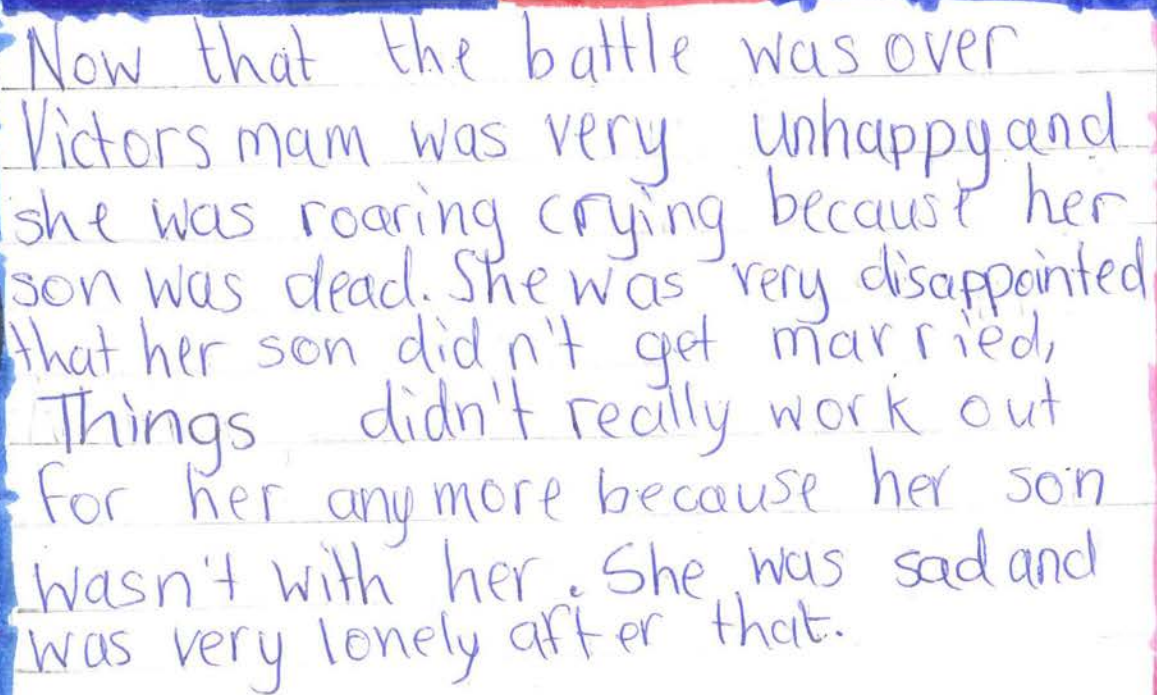 Now that the battle was over
Victors mam was very unhappy and
she was roaring crying because her
son was dead. She was very disappointed
that her son didn't get married,
Things didn't really work out
for her anymore because her son
wasn't with her. She was sad and
was very lonely after that.